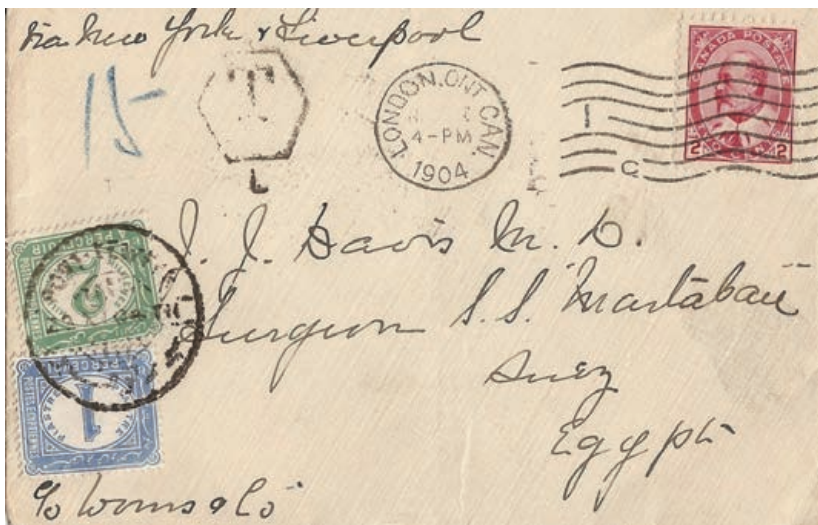 via New York & Liverpool
15
T
L
LONDON, ONT. CAN.
4-PM
1904
I
C
CANADA POSTAGE
2 2
J. J. Davis M. D.
Surgeon S.S. "Martaban"
Suez
Egypt
A PERCEVOIR
2
PORT-TEWFIK
A PERCEVOIR
1
PIASTRE
c/o Worms & Co